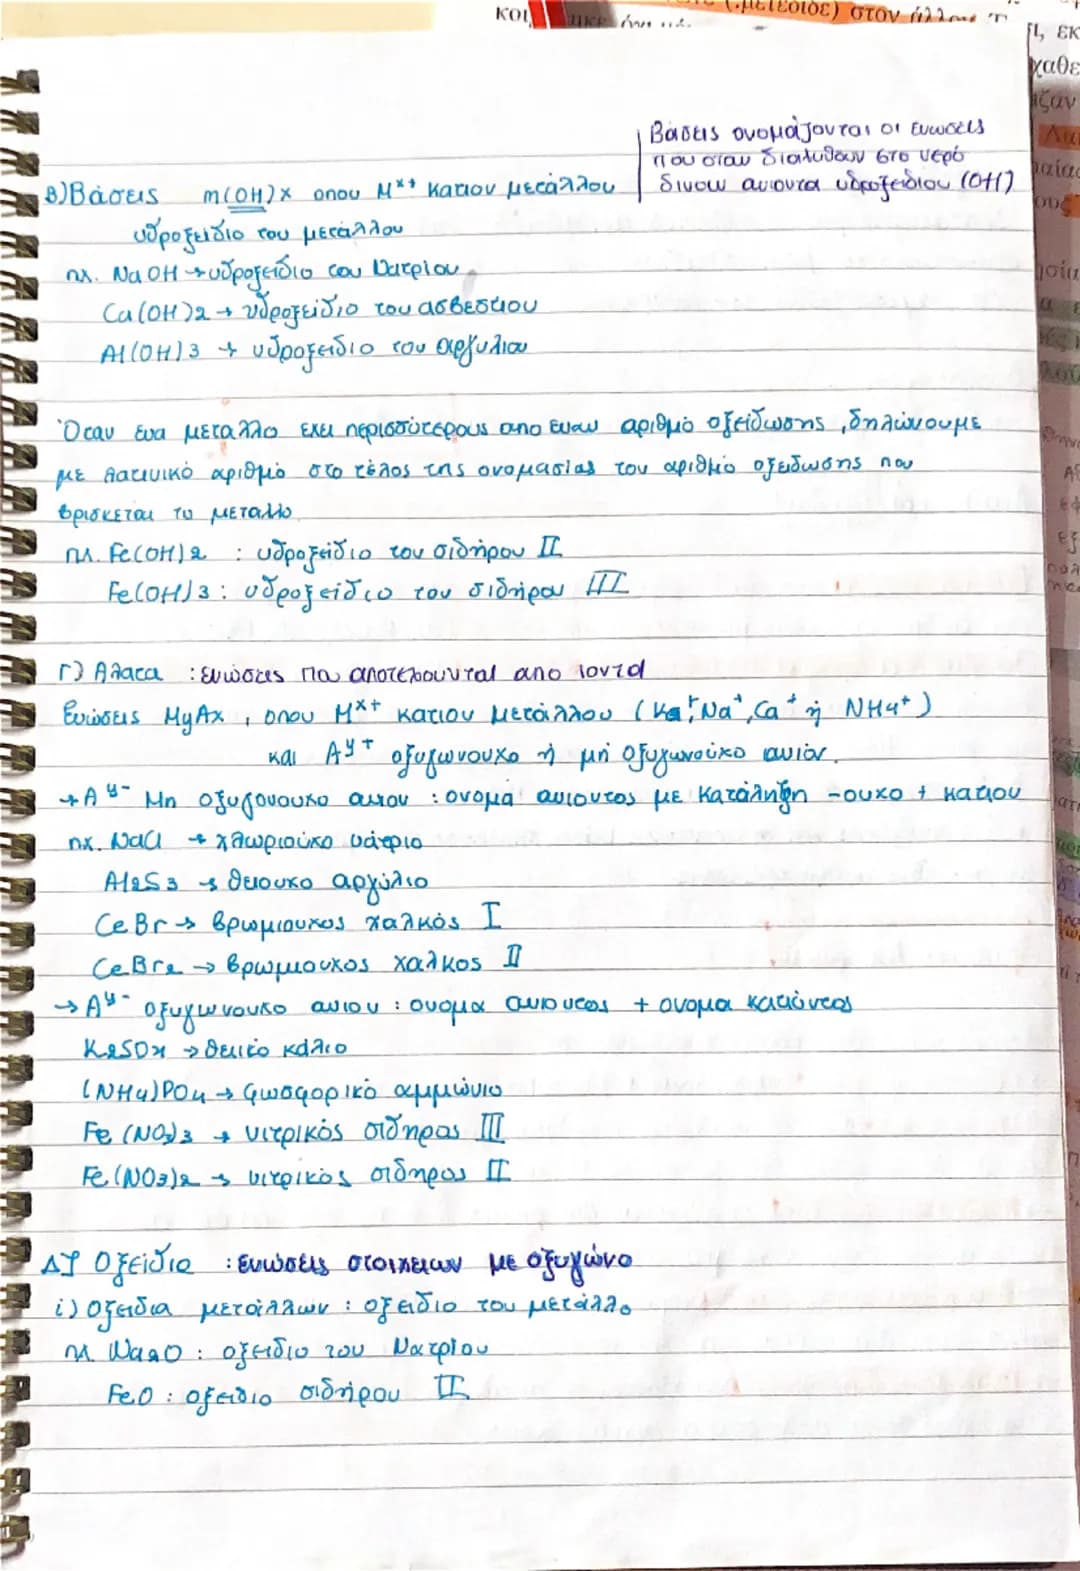 Βάσεις ονομάζονται οι ενώσεις
που όταν διαλυθούν στο νερό
δίνουν ανιόντα υδροξειδίου (OH)
B) Βάσεις m(OH)x οπου M^x+ κατιον μετάλλου
υδροξείδιο του μετάλλου
πχ. NaOH → υδροξείδιο του Νατρίου
Ca(OH)2 → υδροξείδιο του ασβεστιου
Al(OH)3 → υδροξείδιο του αργιλιου
Όταν ένα μεταλλο εχει περισσότερους απο εναν αριθμό οξείδωσης, δηλώνουμε
με λατινικό αριθμό στο τέλος της ονομασίας του αριθμό οξειδωσης που
βρισκεται το μεταλλο
πχ. Fe(OH)2 : υδροξείδιο του σιδήρου II
Fe(OH)3 : υδροξείδιο του σιδήρου III
Γ) Αλατα : ενώσεις που αποτελουνται απο ιοντα
Ενώσεις MyAx, οπου M^x+ κατιον μετάλλου (Ka+, Na+, Ca+ ή NH4+)
και A^y+ οξυγωνουχο ή μη οξυγωνούχο ανιόν.
→ A^y- Μη οξυγονουχο ανιον : ονομα ανιοντος με κατάληξη -ουχο + κατιον
πχ. NaCl → χλωριούχο νάτριο
Al2S3 → θειουχο αργύλιο
CeBr → βρωμιουχος χαλκός I
CeBr2 → βρωμιουχος χαλκος II
→ A^y- οξυγωνουχο ανιον : ονομα ανιοντος + ονομα κατιόντος
K2SO4 → θειικο κάλιο
(NH4)PO4 → φωσφορικό αμμώνιο
Fe(NO3)3 → νιτρικός σίδηρος III
Fe(NO3)2 → νιτρικός σιδηρος II
Δ) Οξείδια : ενώσεις στοιχειων με οξυγώνο
i) Οξειδια μετάλλων : οξειδιο του μετάλλο
πχ. Na2O : οξειδιο του Νατριου
FeO : οξειδιο σιδήρου II